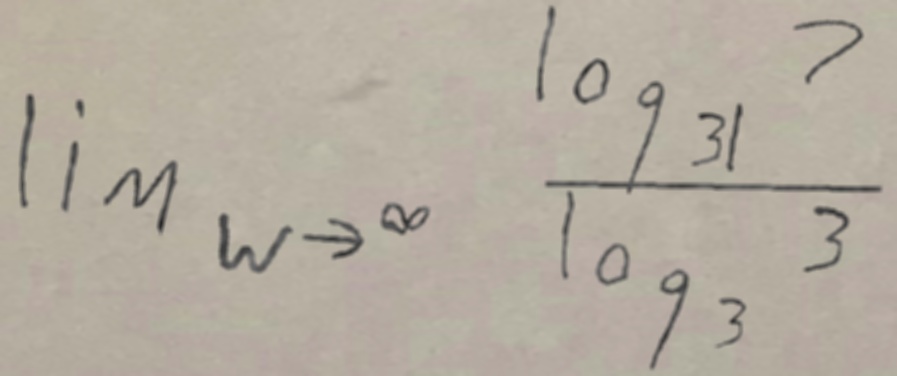 lim w→∞ log 31 7 / log 3 3